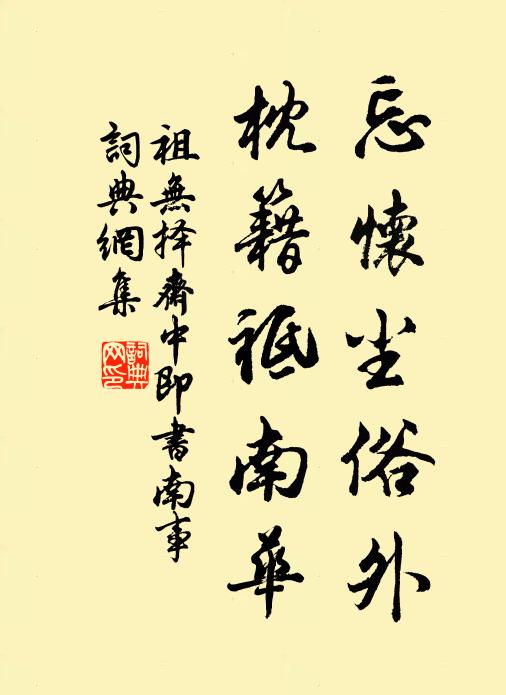 忘懷尘俗外
枕籍祗南華
祖無择齋中即書南事
詞典網集
詞典網印